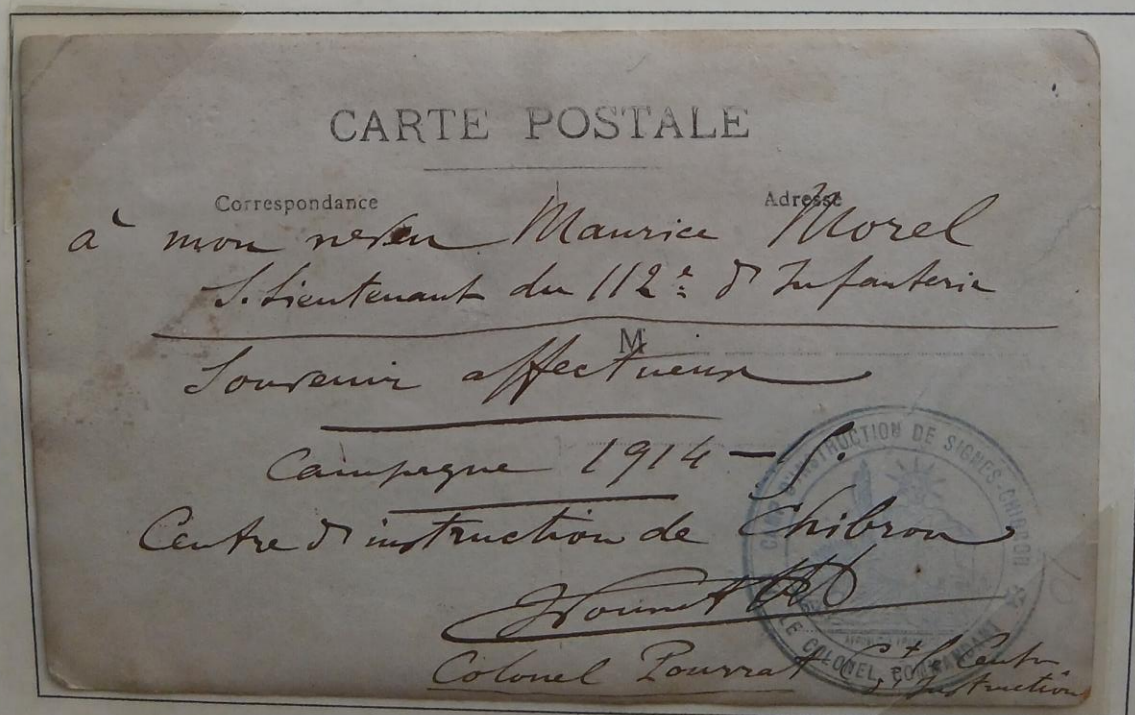 CARTE POSTALE
Correspondance
Adresse
à mon neveu Maurice Morel
S. Lieutenant du 112e d'Infanterie
M
Souvenir affectueux
Campagne 1914-5.
Centre d'instruction de Chibron
Colonel Pourrat Ct le Centre
d'Instruction
CAMP D'INSTRUCTION DE SIGNES-CHIBRON
LE COLONEL COMMANDANT